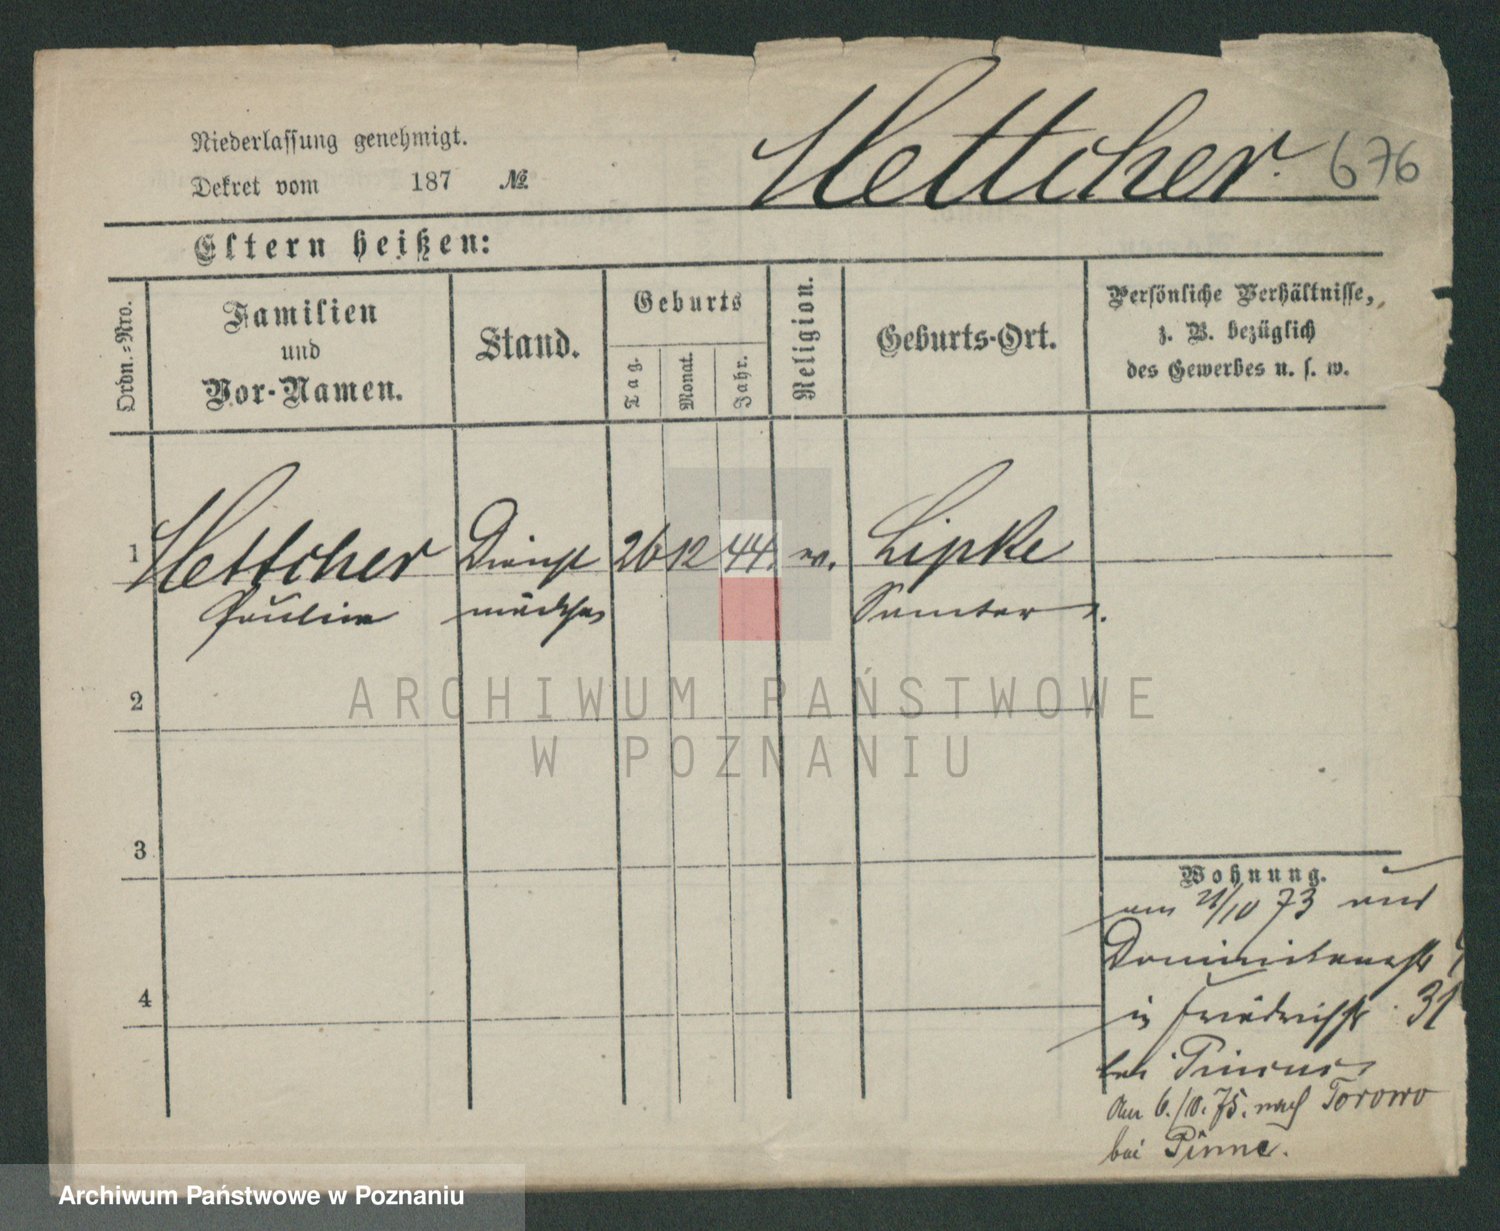 Niederlassung genehmigt.
Dekret vom 187 №
Hettcher. 676
Eltern heißen:
Ordn.-Nro.
Familien
und
Vor-Namen.
Stand.
Geburts
Tag.
Monat.
Jahr.
Religion.
Geburts-Ort.
Persönliche Verhältnisse,
z. B. bezüglich
des Gewerbes u. s. w.
1 Hettcher Dienst 26 12 44. ev. Lipke
Pauline mädchen Samter
2
3
4
Wohnung.
am 21/10 73 aus
Dominikanerstr
in Friedrichstr. 31
bei Pincus
Am 6./10. 75. nach Torowo
bei Pinne.
ARCHIWUM PAŃSTWOWE
W POZNANIU
Archiwum Państwowe w Poznaniu